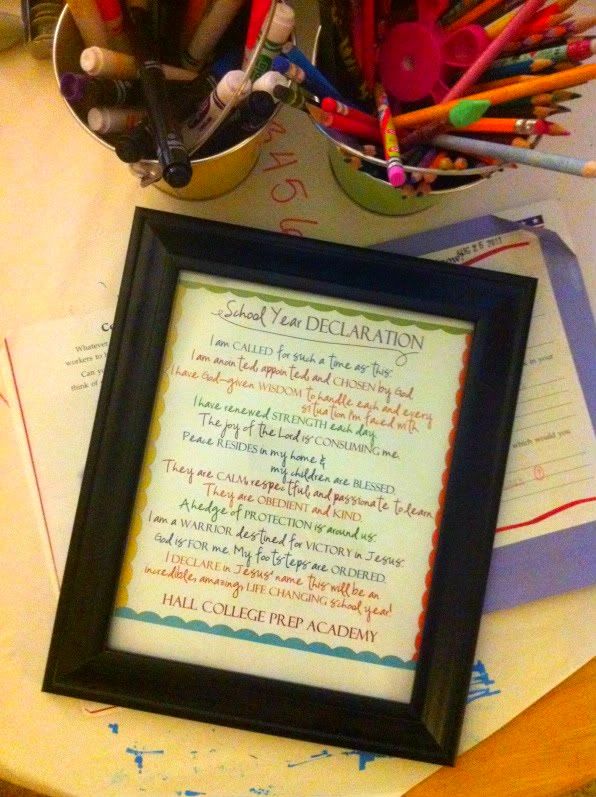 456
AUG 26 2011
Whatever
workers to
Can you
think of
in your
which would you
School Year DECLARATION
I am CALLED for such a time as this.
I am anointed, appointed, and CHOSEN by God
I have God-given WISDOM to handle each and every
situation I'm faced with
I have renewed STRENGTH each day.
The joy of the Lord is CONSUMING me
Peace RESIDES in my home &
my children are BLESSED.
They are CALM, respectful, and passionate to learn
They are OBEDIENT and KIND.
A hedge of PROTECTION is around us.
I am a WARRIOR destined for VICTORY in Jesus.
God is FOR me. My footsteps are ORDERED.
I DECLARE in Jesus' name this will be an
incredible, amazing, LIFE CHANGING school year!
HALL COLLEGE PREP ACADEMY